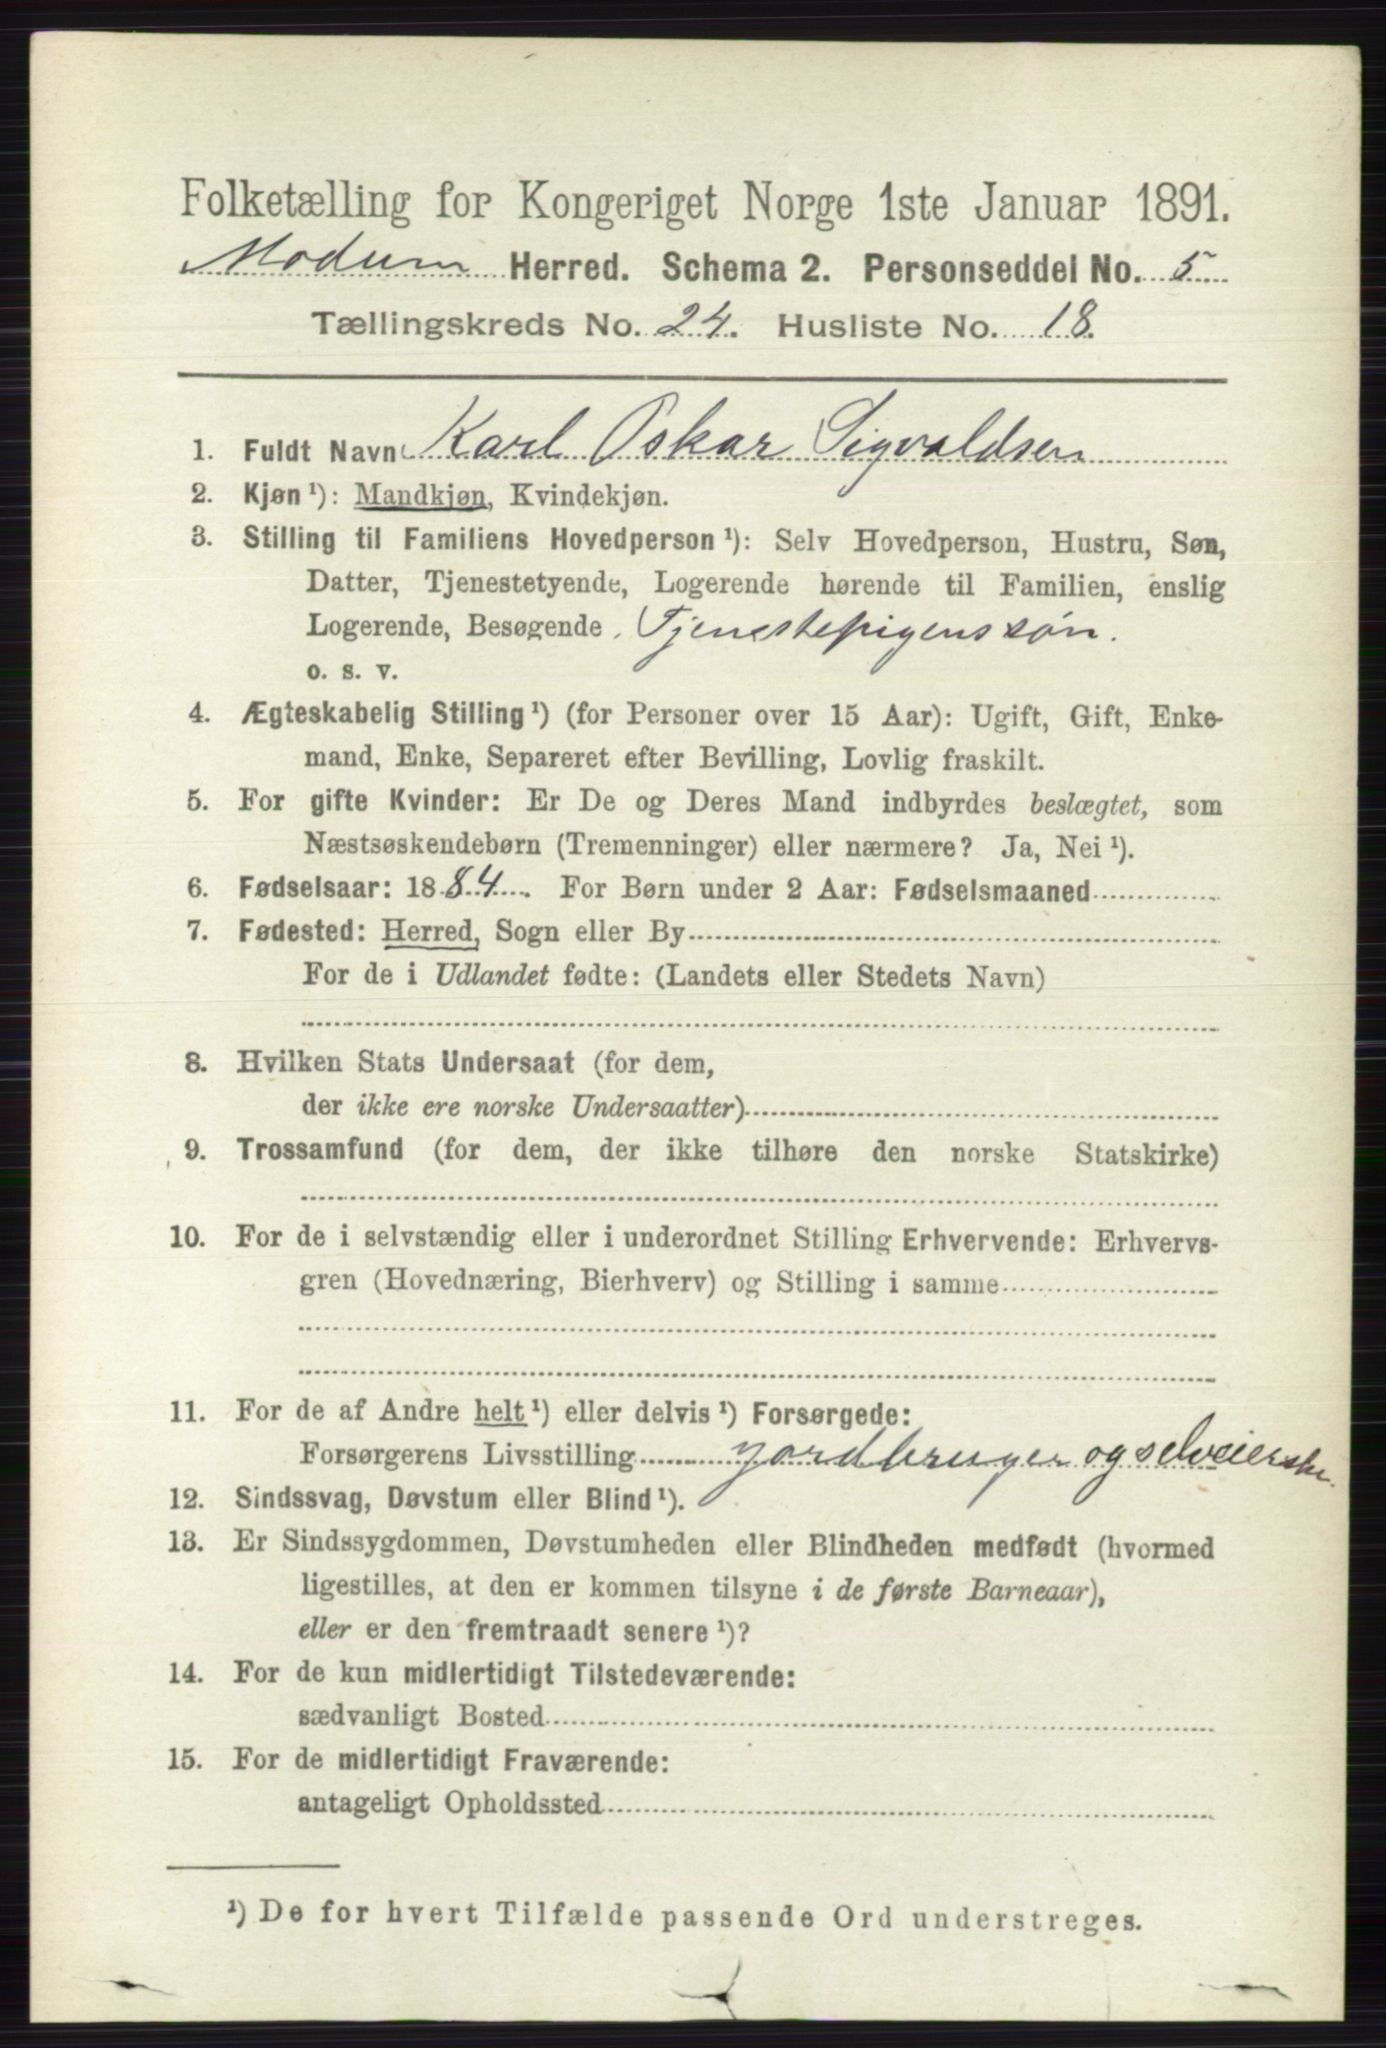 Folketælling for Kongeriget Norge 1ste Januar 1891.
Modum Herred. Schema 2. Personseddel No. 5
Tællingskreds No. 24. Husliste No. 18.
1. Fuldt Navn Karl Oskar Sigvaldsen
2. Kjøn ¹): Mandkjøn, Kvindekjøn.
3. Stilling til Familiens Hovedperson ¹): Selv Hovedperson, Hustru, Søn,
Datter, Tjenestetyende, Logerende hørende til Familien, enslig
Logerende, Besøgende, Tjenestepigens søn.
o. s. v.
4. Ægteskabelig Stilling ¹) (for Personer over 15 Aar): Ugift, Gift, Enke-
mand, Enke, Separeret efter Bevilling, Lovlig fraskilt.
5. For gifte Kvinder: Er De og Deres Mand indbyrdes beslægtet, som
Næstsøskendebørn (Tremenninger) eller nærmere? Ja, Nei ¹).
6. Fødselsaar: 1884. For Børn under 2 Aar: Fødselsmaaned
7. Fødested: Herred, Sogn eller By
For de i Udlandet fødte: (Landets eller Stedets Navn)
8. Hvilken Stats Undersaat (for dem,
der ikke ere norske Undersaatter)
9. Trossamfund (for dem, der ikke tilhøre den norske Statskirke)
10. For de i selvstændig eller i underordnet Stilling Erhvervende: Erhvervs-
gren (Hovednæring, Bierhverv) og Stilling i samme
11. For de af Andre helt ¹) eller delvis ¹) Forsørgede:
Forsørgerens Livsstilling jordbruger og selveierske.
12. Sindssvag, Døvstum eller Blind ¹).
13. Er Sindssygdommen, Døvstumheden eller Blindheden medfødt (hvormed
ligestilles, at den er kommen tilsyne i de første Barneaar),
eller er den fremtraadt senere ¹)?
14. For de kun midlertidigt Tilstedeværende:
sædvanligt Bosted
15. For de midlertidigt Fraværende:
antageligt Opholdssted
¹) De for hvert Tilfælde passende Ord understreges.